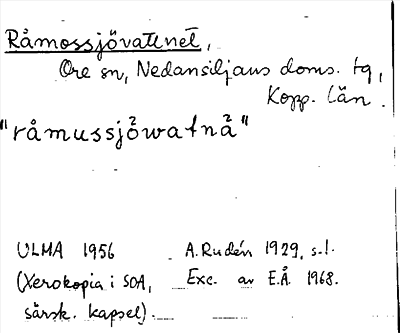 Råmossjövattnet,
Ore sn, Nedansiljans doms. tg,
Kopp. län.
"råmussjôwatnå̂"
ULMA 1956 A. Rudén 1929, s. 1.
(Xerokopia i SOA, Exc. av E.Å. 1968.
särsk. kapsel).